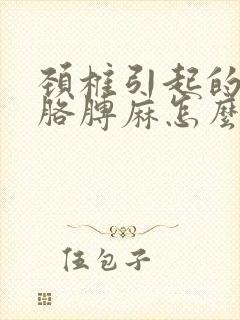 頚椎引起的
胳膊麻怎麼
伍包子